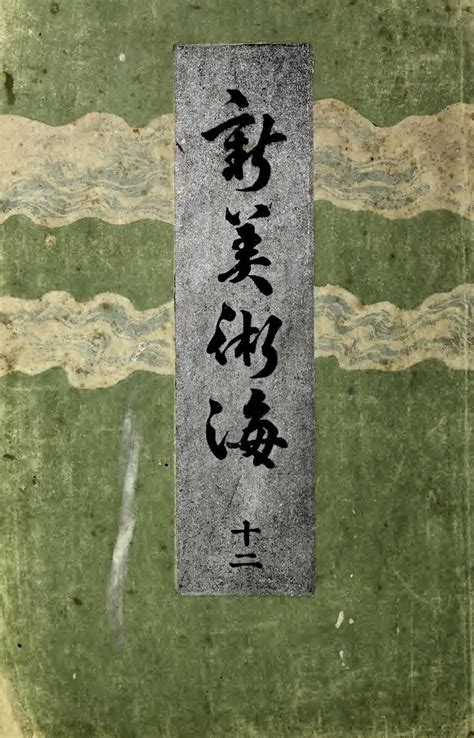 新美術海
十二